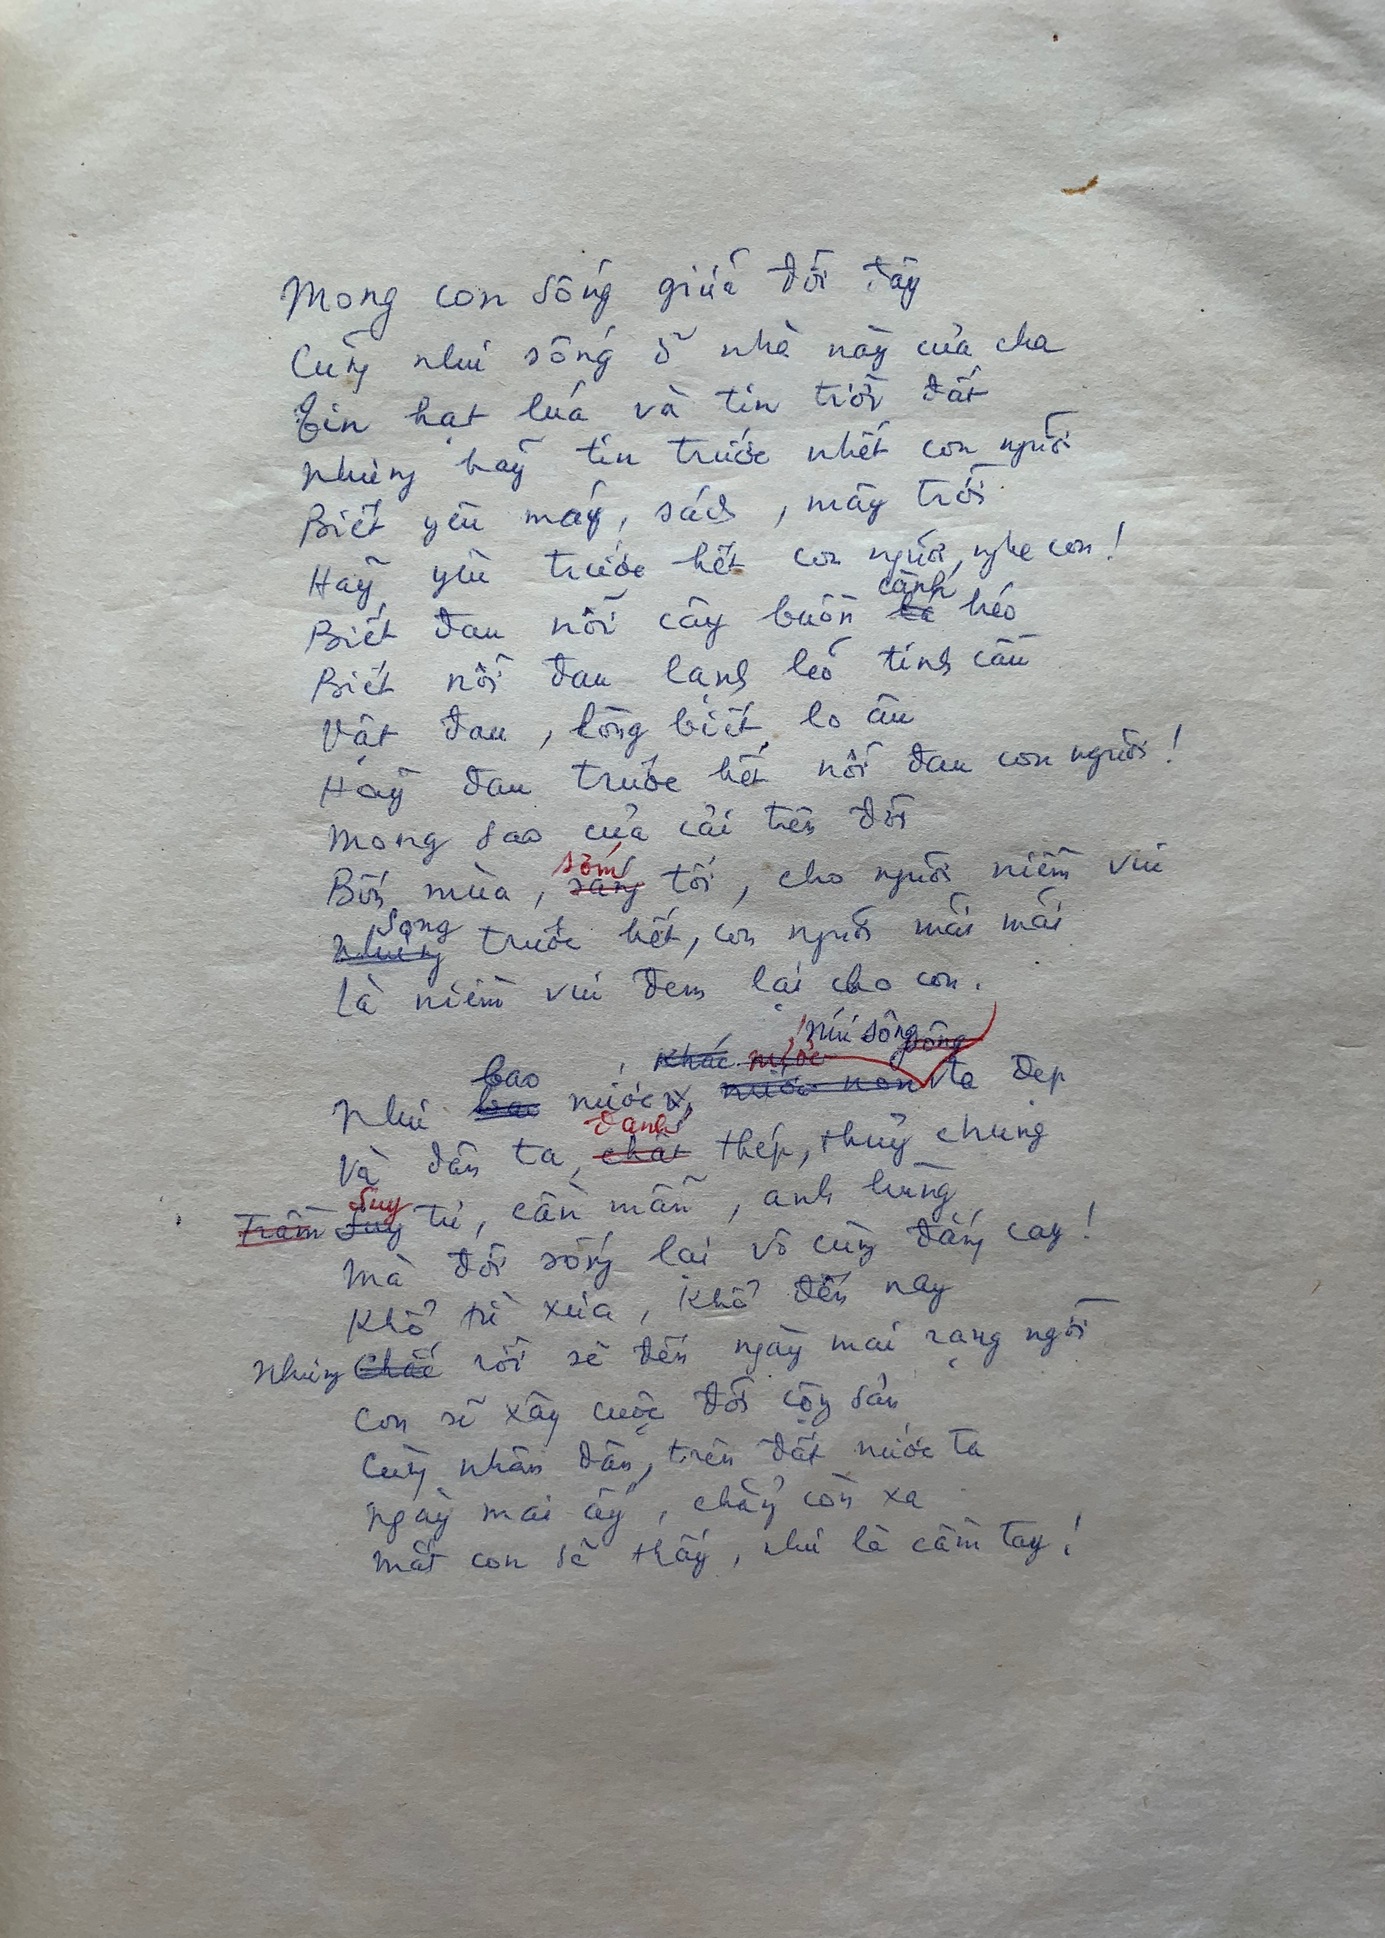 Mong con sống giữa đời đây
Cũng như sống ở nhà này của cha
Tin hạt lúa và tin trời đất
Nhưng hãy tin trước nhất con người
Biết yêu máy, sách, mây trời
Hãy yêu trước hết con người, nghe con!
cành
Biết đau nỗi cây buồn lá héo
Biết nỗi đau lạnh lẽo tinh cầu
Vật đau, lòng biết lo âu
Hãy đau trước hết nỗi đau con người!
Mong sao của cải trên đời
sớm
Bốn mùa, sáng tối, cho người niềm vui
Song
Nhưng trước hết, con người mãi mãi
Là niềm vui đem lại cho con.
bao khác nước núi sông sông
Như bao nước, nước non ta đẹp
đanh
Và dân ta, chất thép, thuỷ chung
Suy
Trầm Suy tư, cần mẫn, anh hùng
Mà đời sống lại vô cùng đắng cay!
Khổ từ xưa, khổ đến nay
Nhưng Chắc rồi sẽ đến ngày mai rạng ngời
Con sẽ xây cuộc đời cộng sản
Cùng nhân dân, trên đất nước ta
Ngày mai ấy, chẳng còn xa
Mắt con sẽ thấy, như là cầm tay!